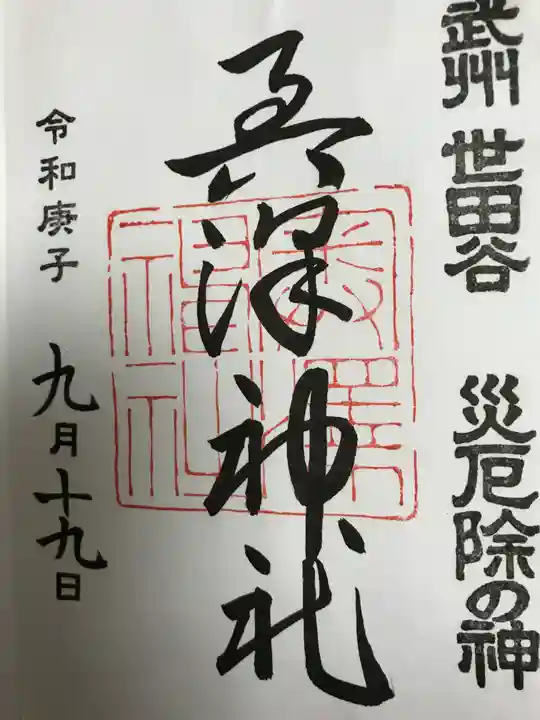 武州 世田谷 災厄除の神
奥澤神社
奥澤
神社
令和庚子 九月十九日